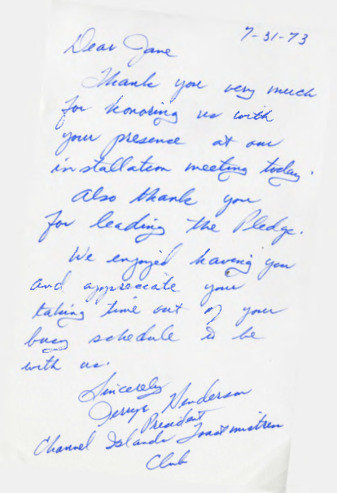 7-31-73
Dear Jane
Thank you very much
for honoring us with
your presence at our
installation meeting today.
Also thank you
for leading the Pledge.
We enjoyed having you
and appreciate your
taking time out of your
busy schedule to be
with us.
Sincerely
Henderson
President
Channel Islands Toastmistress
Club